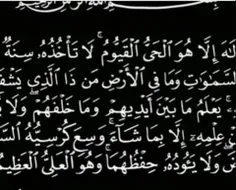 الله الرحمن الرحيم
لَهَ إِلَّا هُوَ الْحَيُّ الْقَيُّومُ ۚ لَا تَأْخُذُهُ سِنَةٌ
السَّمَاوَاتِ وَمَا فِي الْأَرْضِ مَن ذَا الَّذِي يَشْفَ
يَعْلَمُ مَا بَيْنَ أَيْدِيهِمْ وَمَا خَلْفَهُمْ ۖ وَلَا
عِلْمِهِ إِلَّا بِمَا شَاءَ ۚ وَسِعَ كُرْسِيُّهُ السَّ
وَلَا يَئُودُهُ حِفْظُهُمَا ۚ وَهُوَ الْعَلِيُّ الْعَظِيمُ